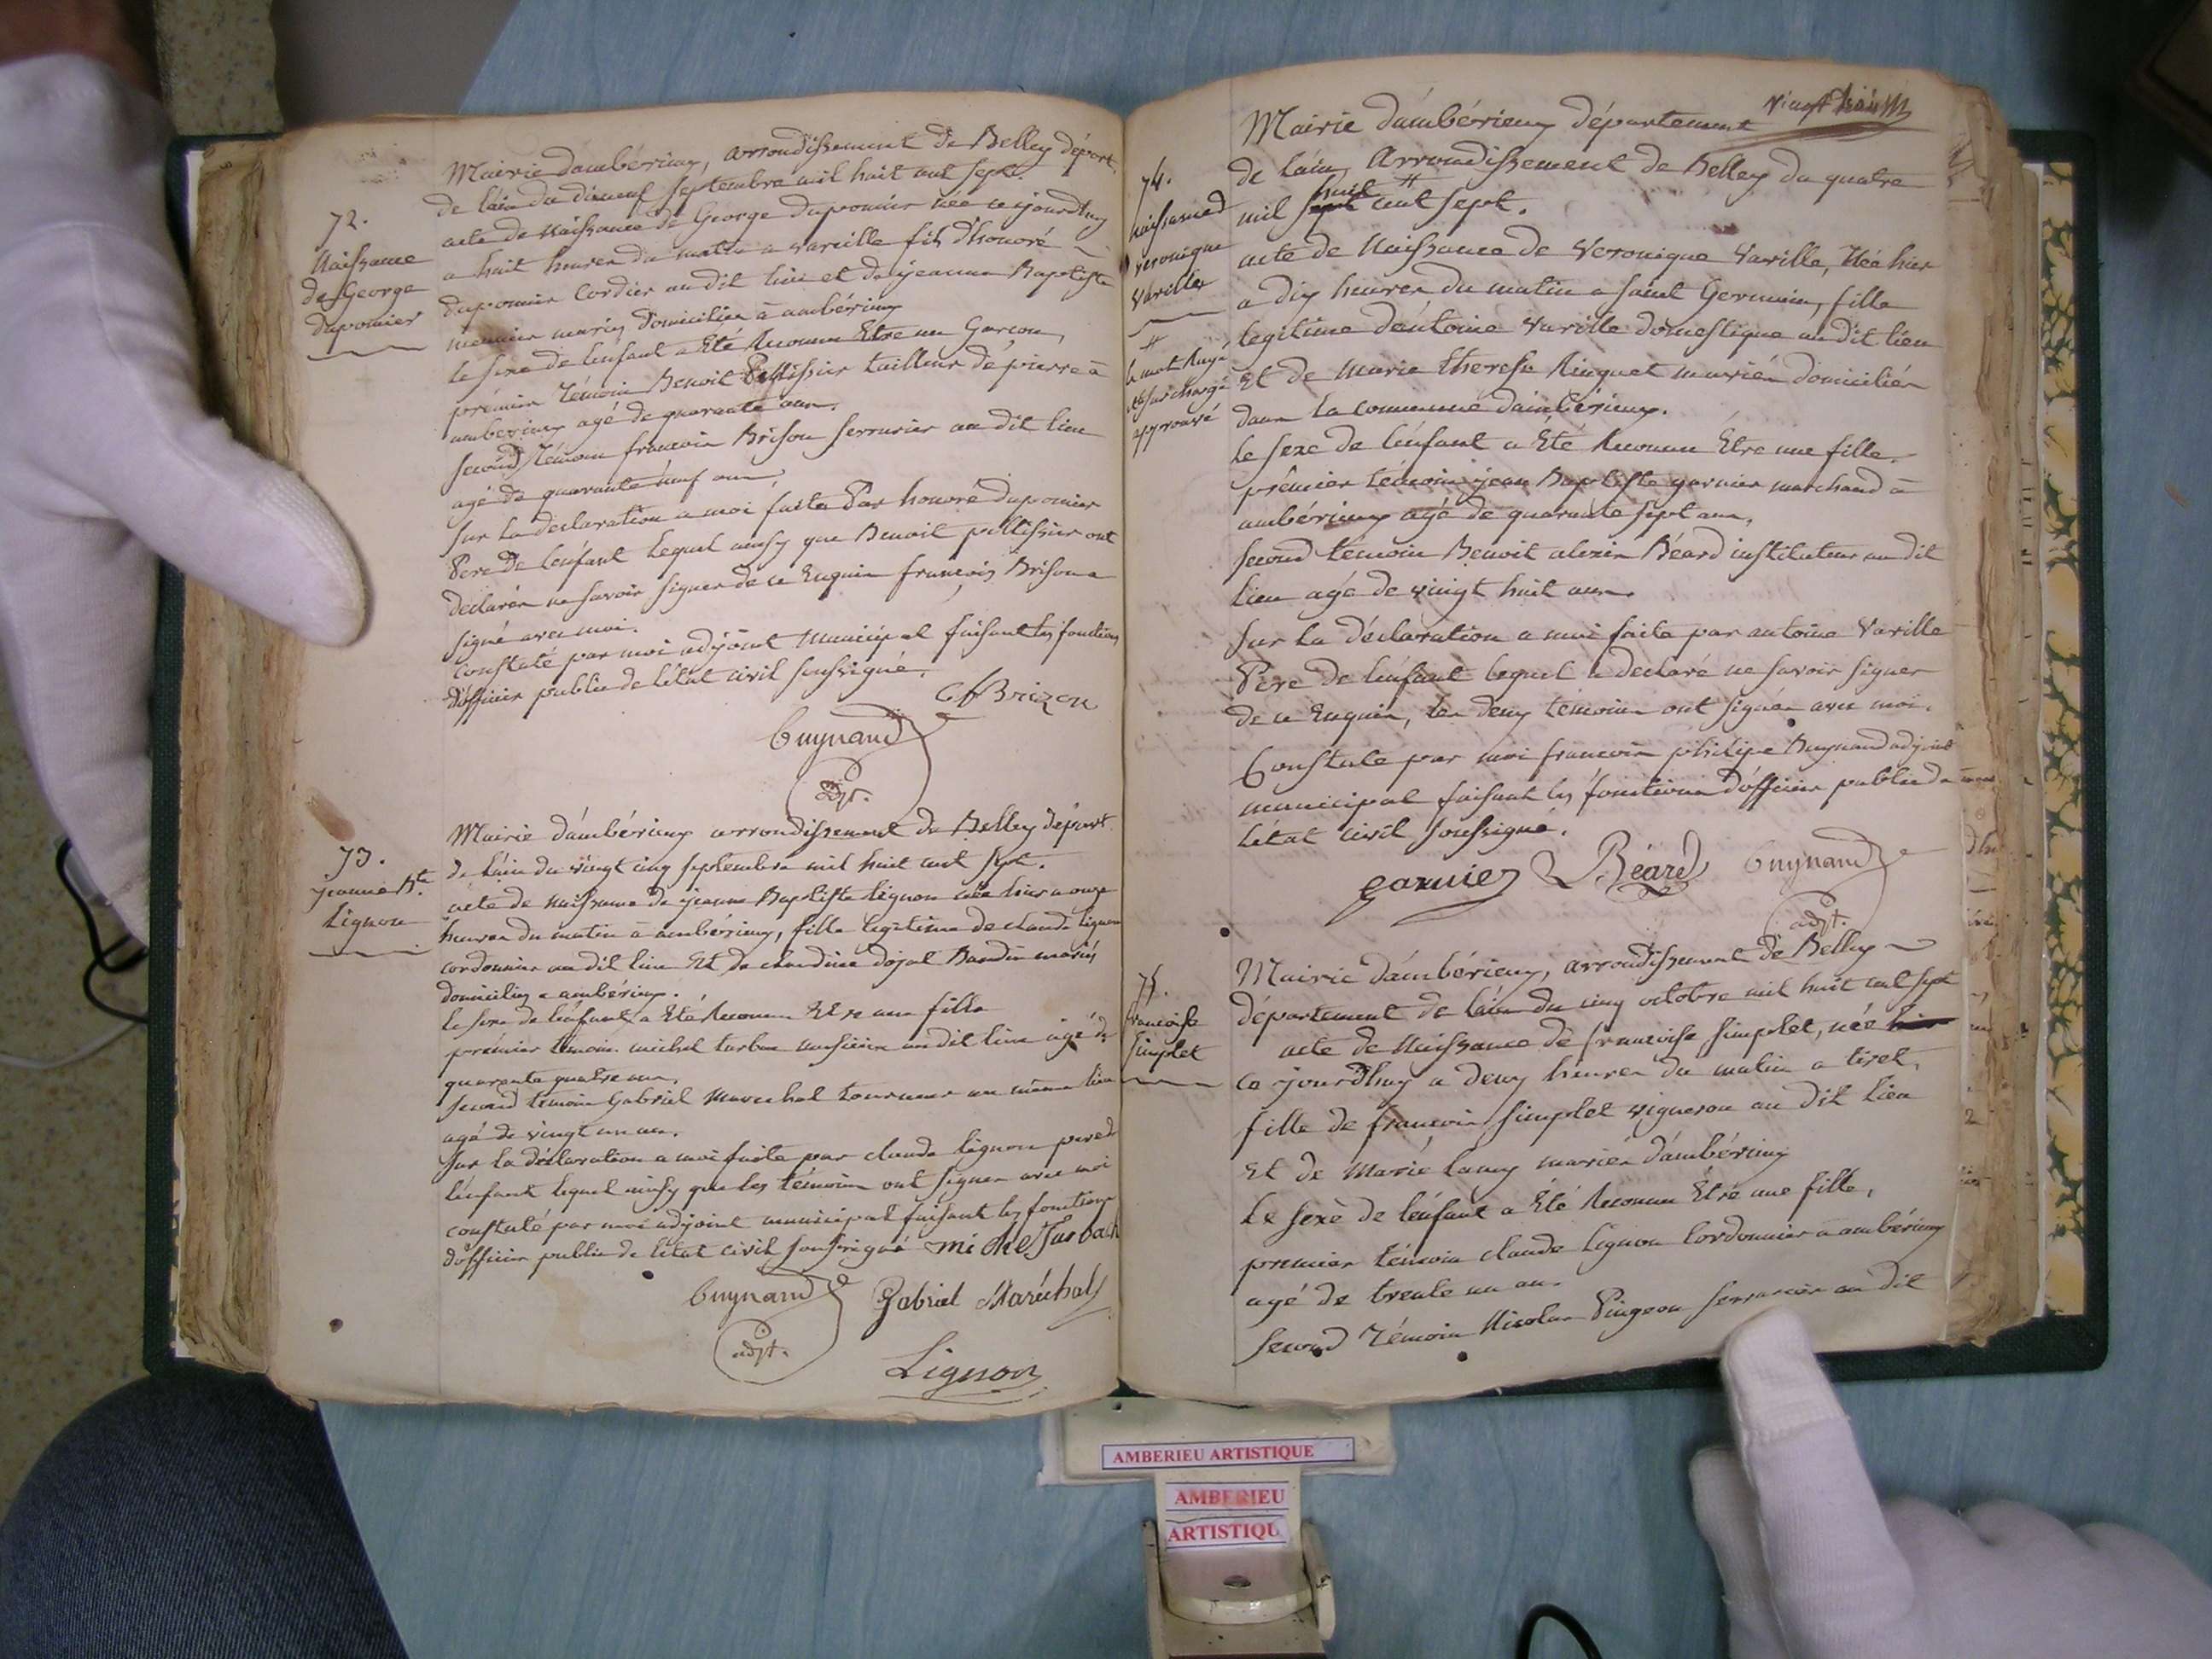 72.
Naissance
de George
Duponier
Mairie d'ambérieux, arrondissement de Belley départ.
de l'ain du dixneuf septembre mil huit cent sept.
acte de naissance de George duponier née ce jourdhuy
a huit heures du matin a vareille fils d'honoré
duponier cordier au dit lieu et de jeanne Baptiste
meunier mariés domiciliés à ambérieux
le sexe de l'enfant a Eté Reconnu Etre un Garcon,
prémier témoin Benoit Pellissier tailleur de pierre à
ambérieux agé de quarante ans.
second témoin francois Brison serrurier au dit lieu
agé de quarante neuf ans,
sur la déclaration a moi faite Par honoré duponier
Pere De l'enfant lequel ainsy que Benoit pellissier ont
declarés ne savoir signer de ce Enquis françois Brison a
signé avec moi.
constaté par moi adjoint Municipal faisant les fonctions
d'officier public de l'état civil soussigné.
f Brizon
Buynand
adjt.
73.
jeanne Bte
Lignon
Mairie d'ambérieux arrondissement de Belley départ.
de l'ain du vingt cinq septembre mil huit cent sept.
acte de naissance de jeanne Baptiste lignon née hier a onze
heures du matin à ambérieux, fille legitime de claude lignon
cordonnier au dit lieu Et de claudine dojat Baudin mariés
domiciliés a ambérieux.
le sexe de l'enfant a Eté Reconnu Etre une fille
prémier témoin michel turban musicien au dit lieu agé de
quarante quatre ans,
second témoin Gabriel Marechal tourneur au même lieu
agé de vingt un an.
sur la déclaration a moi faite par claude lignon pere de
l'enfant lequel ainsy que les témoins ont signer avec moi
constaté par moi adjoint municipal faisant les fonctions
d'officier public de l'état civil soussigné michel Turbach
Buynand Gabriel Maréchal
adjt.
Lignon
vingt
74.
naissance d
veronique
Varille
#
le mot Rayé
et surchargé
approuvé
Mairie d'ambérieux département
de l'ain, Arrondissement de Belley du quatre #
huit
mil sept cent sept.
acte de Naissance de Veronique Varille, Née hier
a dix heures du matin a saint Germain, fille
legitime d'entoine Varille domestique au dit lieu
Et de Marie therese Ringuet mariés domiciliés
dans la commune d'ambérieux.
le sexe de l'enfant a Eté Reconnu Etre une fille.
prémier témoin jean Baptiste garnier marchand à
ambérieux agé de quarante sept ans,
second témoin Benoit alexis Béard instituteur au dit
lieu agé de vingt huit ans.
sur la déclaration a moi faite par antoine Varille
Pere de l'enfant lequel a declaré ne savoir signer
de ce Enquis, les deux témoins ont signés avec moi.
Constaté par moi francois philipe Buynand adjoint
municipal faisant les fonctions d'officier public de
l'état civil soussigné.
garnier Béard Buynand
adjt.
75.
francoise
Simplet
Mairie d'ambérieux, arrondissement de Belley
département de l'ain du cinq octobre mil huit cent sept
acte de Naissance de francoise simplet, née hier
ce jourdhuy a deux heures du matin a tiret,
fille de francois simplet vigneron au dit lieu
Et de Marie lamy mariés d'ambérieux
Le sexe de l'enfant a Eté Reconnu Etre une fille,
premier témoin claude lignon Cordonnier a ambérieux
agé de trente un ans
second témoin Nicolas Pingeon serrurier au dit
AMBERIEU ARTISTIQUE
AMBERIEU
ARTISTIQU